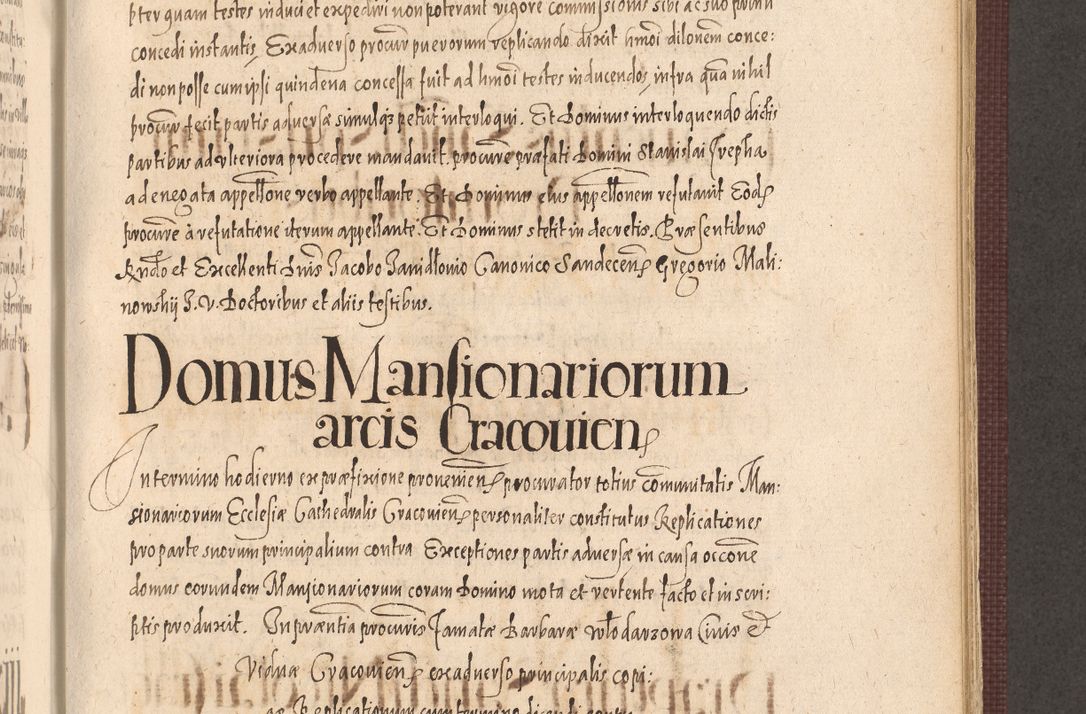 pter quam testes induci et expediri non poterant vigore commissionis sibi ac suo
concedi instantis, Ex adverso procur puerorum replicando dixit hmoi dilonem conce:
di non posse cum ipsi quindena concessa fuit ad hmoi testes inducendos, infra qua nihil
procur fecit partis adversæ simulqz petiit interloqui. Et Dominus interloquendo dictis
partibus ad ulteriora procedere mandavit. procure præfati Domini Stanislai Irepha
a denegata appellone verbo appellante. Et Dominus eius appellonem refutavit Eod
procure à refutatione iterum appellante. Et Dominus stetit in decretis. Præsentibus
Rndo et Excellenti Dnis Jacobo Janidlovio Canonico Sandecen Gregorio Mali:
nowskij J. V. Doctoribus et aliis testibus.
Domus Mansionariorum
arcis Cracovien
In termino hodierno ex præfixione provenien procurator totius comunitatis Man:
sionariorum Ecclesiæ Cathedralis Cracovien personaliter constitutus Replicationes
pro parte suorum principalium contra Exceptiones partis adversæ in causa occone
domus eorundem Mansionariorum coram Domino mota et vertente facto et in scri:
ptis produxit. In præntia procuris famatæ Barbaræ Włodarzowa Civis et
Viduæ Cracovien ex adverso principalis copi:
Replicationum cum termino dicendi contra